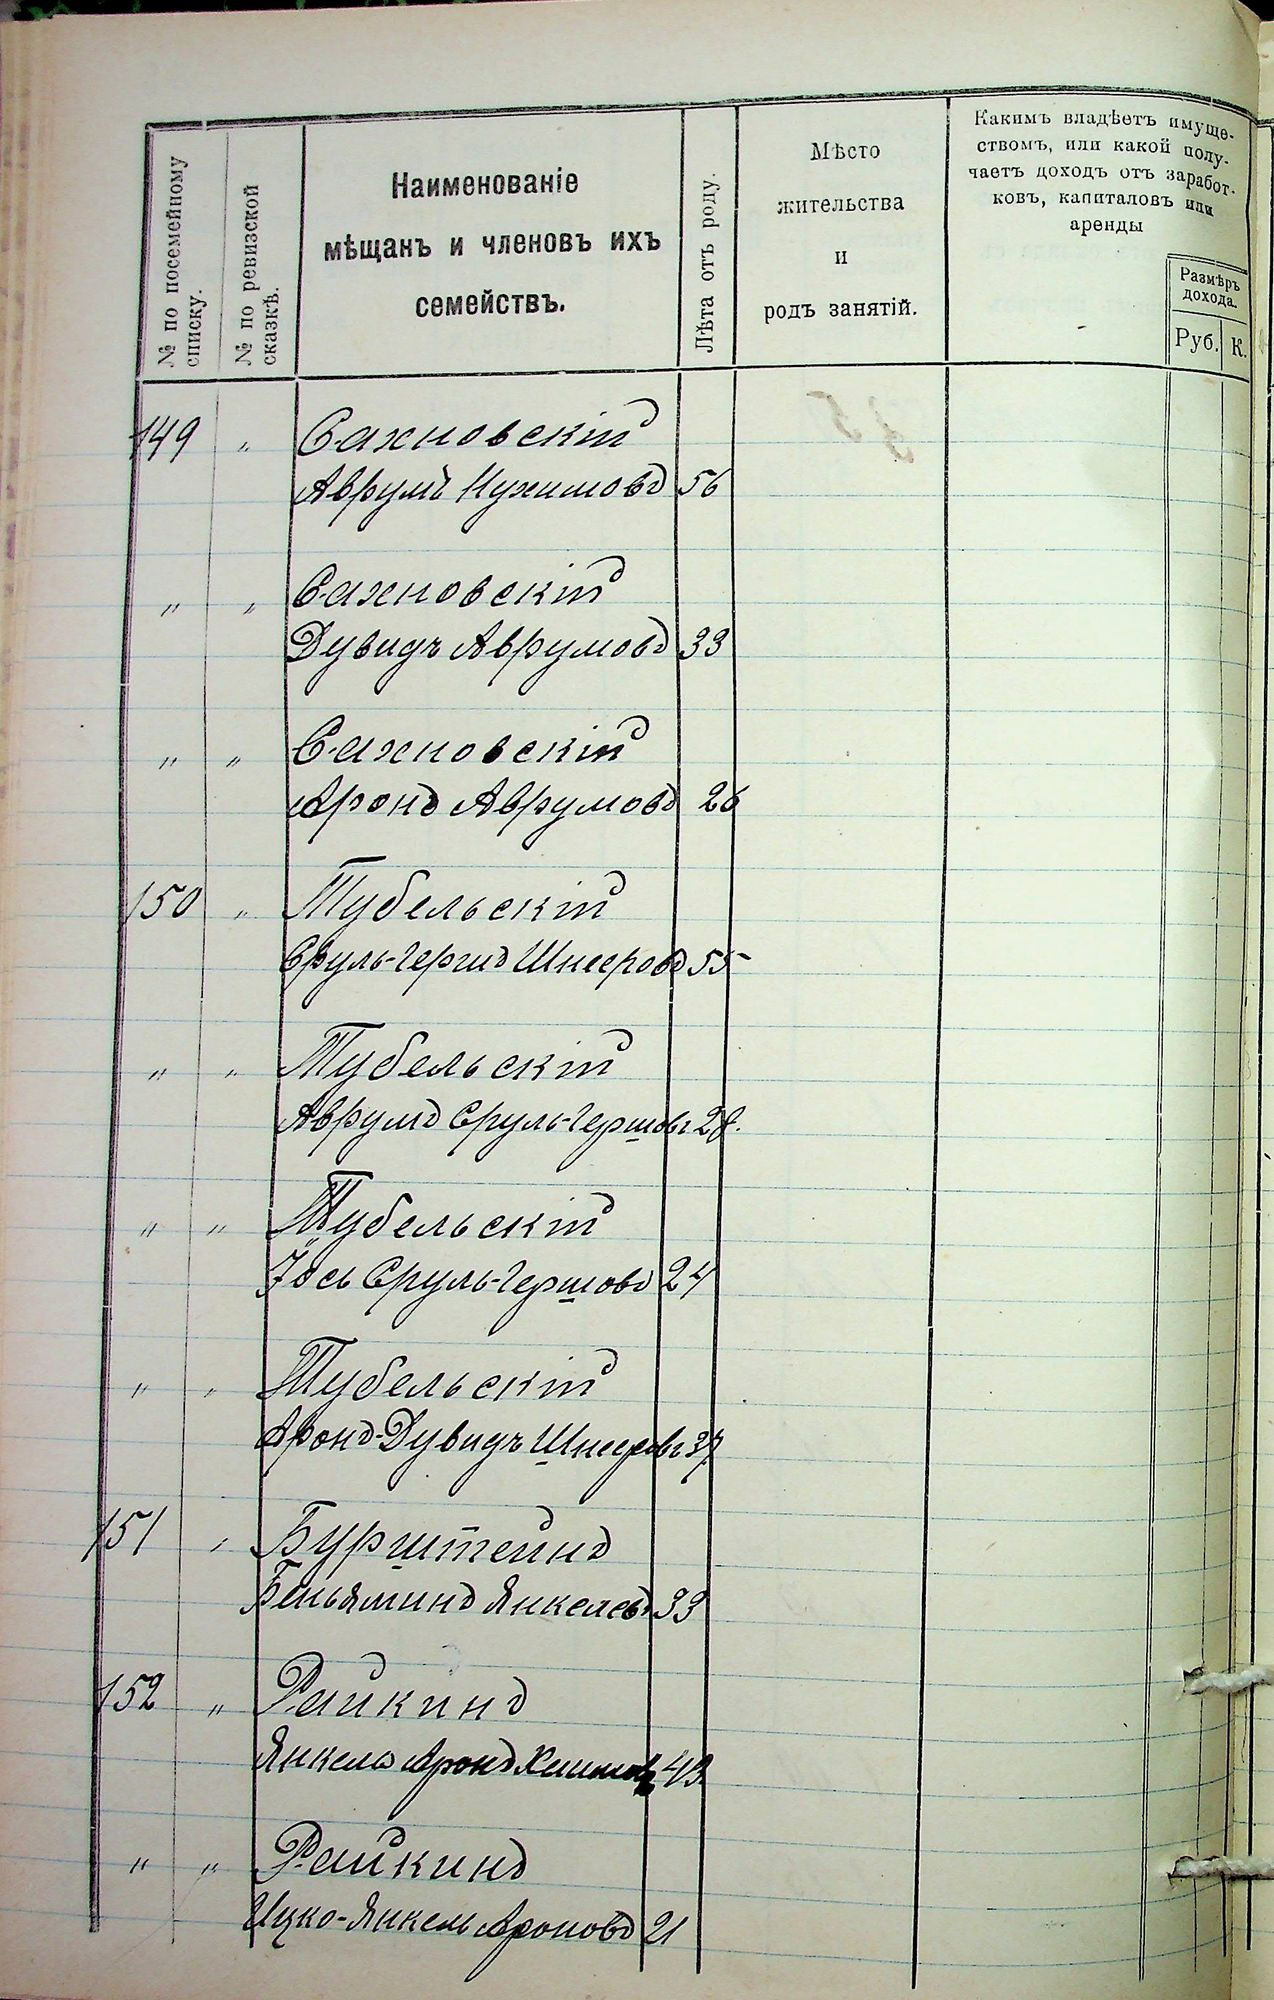 № по посемейному
списку.
№ по ревизской
сказкѣ.
Наименованіе
мѣщанъ и членовъ ихъ
семействъ.
Лѣта отъ роду.
Мѣсто
жительства
и
родъ занятій.
Какимъ владѣетъ имуще-
ствомъ, или какой полу-
чаетъ доходъ отъ заработ-
ковъ, капиталовъ или
аренды
Размѣръ
дохода.
Руб. К.
149 " Сахновскій
Аврумъ Нухимовъ 56
" " Сахновскій
Дувидъ Аврумовъ 33
" " Сахновскій
Аронъ Аврумовъ 26
150 " Тубельскій
Сруль-Гершъ Шнееровъ 55
" " Тубельскій
Аврумъ Сруль-Гершовъ 28.
" " Тубельскій
Іось Сруль-Гершовъ 24
" " Тубельскій
Аронъ-Дувидъ Шнееровъ 37
151 " Бурштейнъ
Беньяминъ Янкелевъ 33
152 " Райкинъ
Янкель Аронъ 43
" " Райкинъ
Ицко-Янкель Ароновъ 21